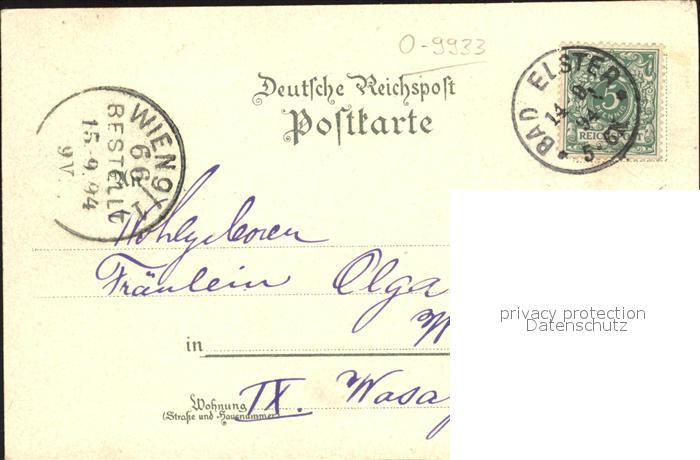 O-9933
Deutsche Reichspost
Postkarte
BAD ELSTER
14 9
94
5-6N
5
REICHSPOST
WIEN 9/1
66
BESTELLT
15.9.94
9V
An
Wohlgeboren
Fräulein Olga
W
in
Wohnung
(Straße und Hausnummer)
IX. Wasa
privacy protection
Datenschutz